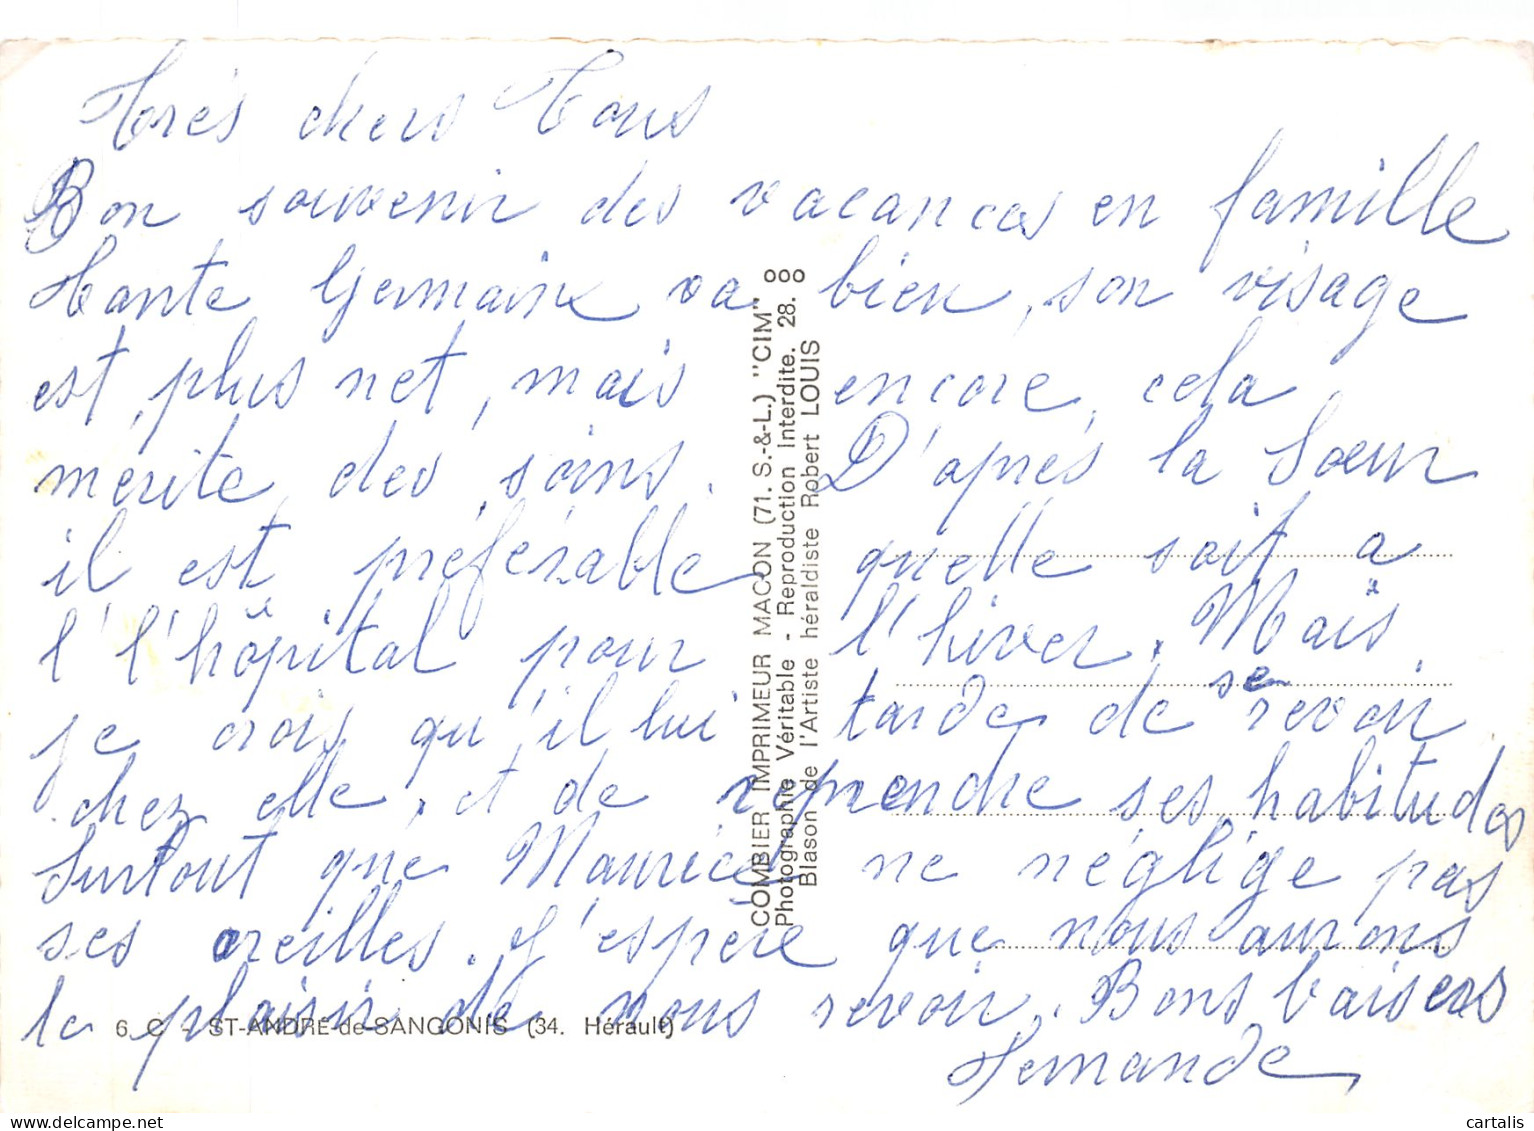 Très chers Tous
Bon souvenir des vacances en famille
Tante Germaine va bien, son visage
est, plus net, mais encore, cela,
mérite, des, soins. D'après la Soeur
il est préférable quelle soit a
l' l'hôpital pour l'hiver. Mais,
je crois, qu'il lui tarde de se revoir
chez elle, et de reprendre ses habitudes
Surtout que Maurice ne néglige pas
ses oreilles. J'espère que nous aurons
le plaisir de vous revoir. Bons baisers
Fernande
6 C - ST-ANDRÉ-de-SANGONIS (34. Hérault)
COMBIER IMPRIMEUR MACON (71. S.-&-L.) "CIM"
Photographie Véritable - Reproduction Interdite. 28.
Blason de l'Artiste héraldiste Robert LOUIS
cartalis